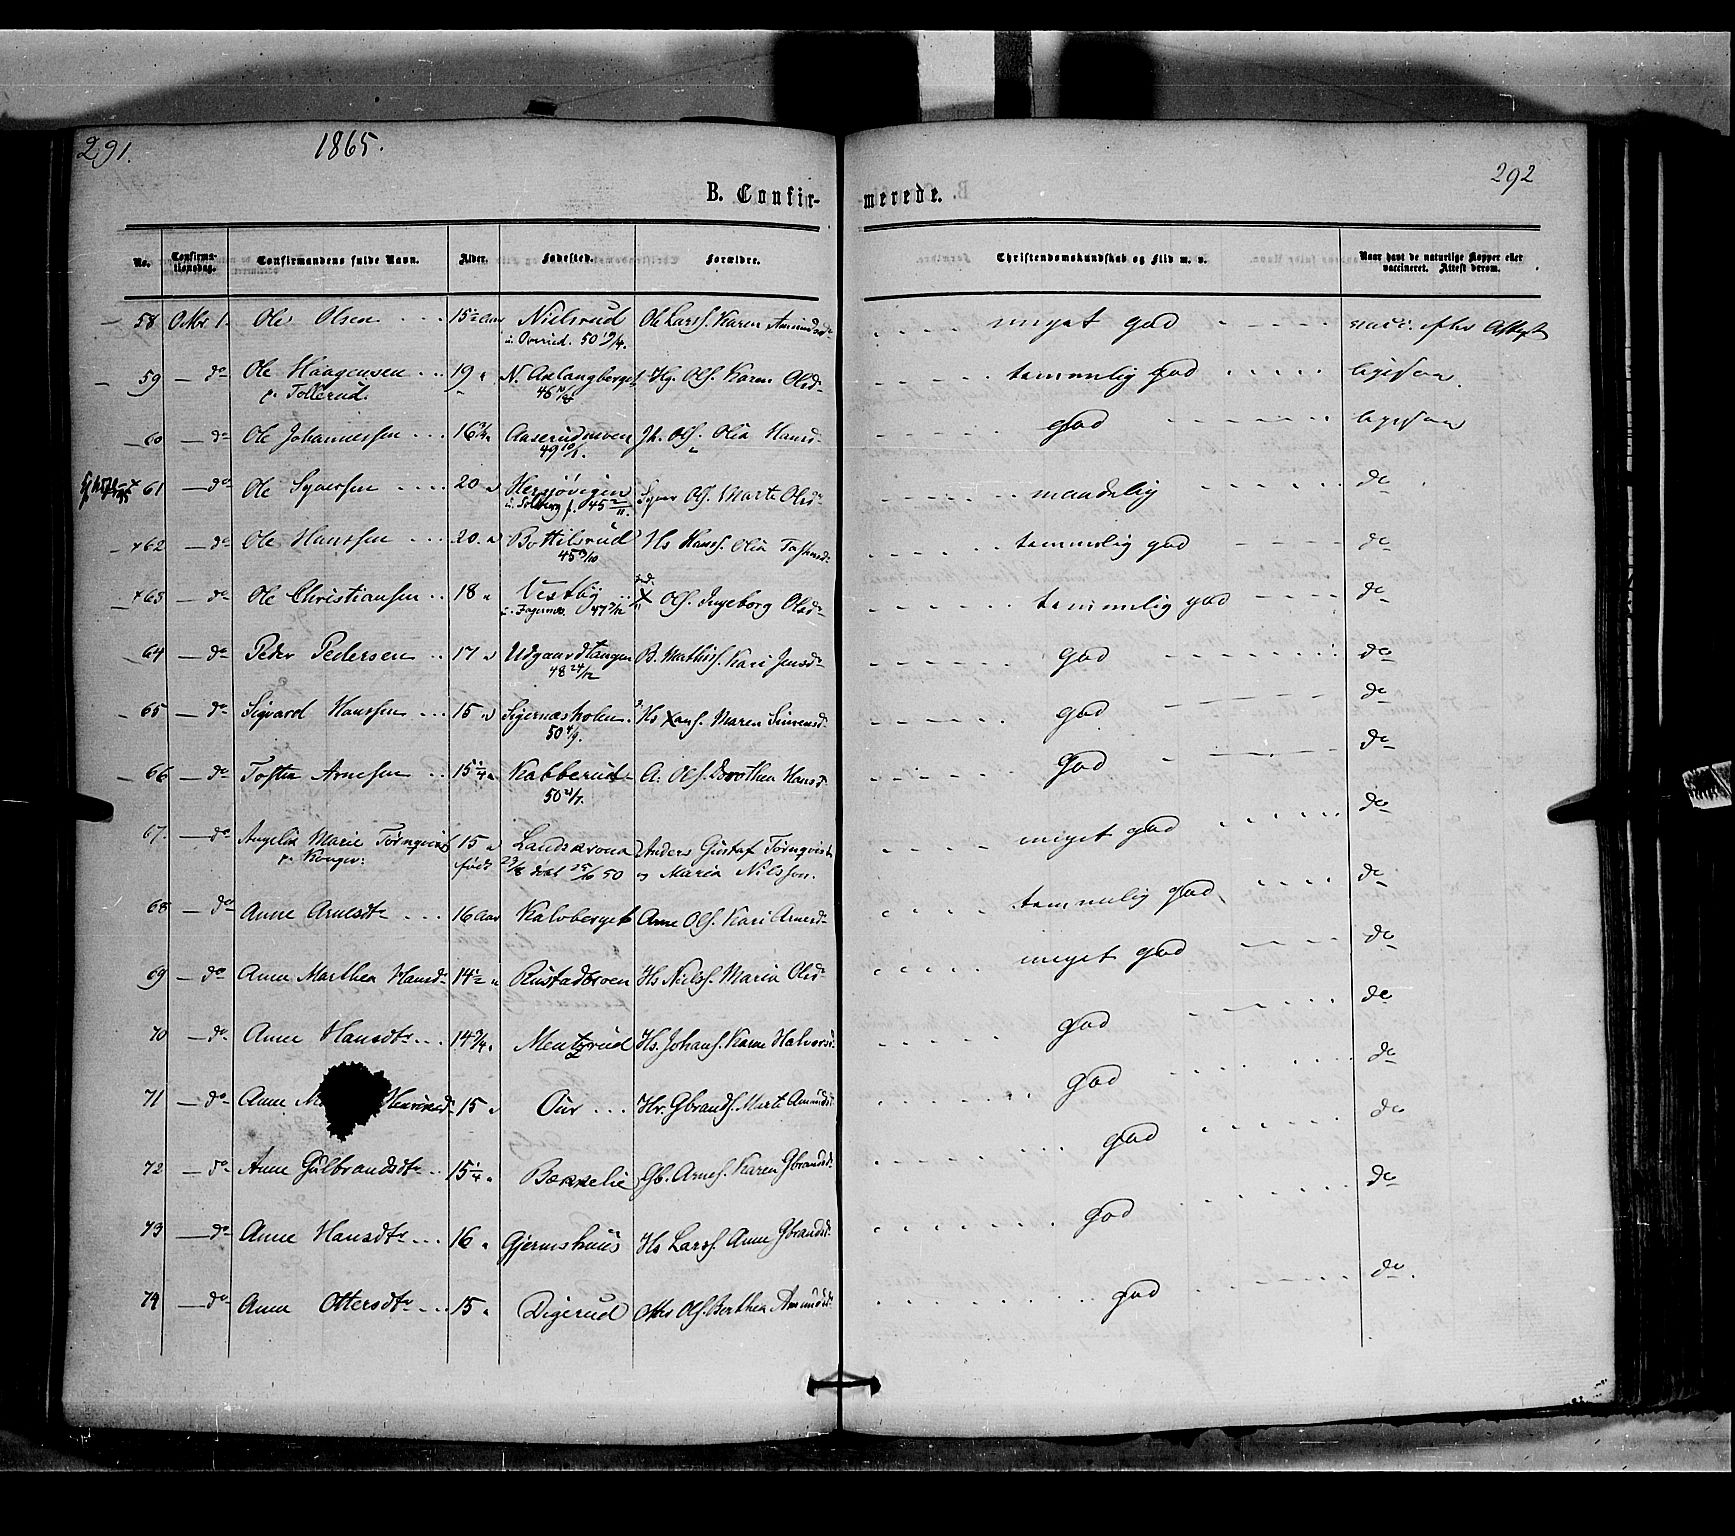 291.
1865.
292
B. Confir-
merede.
No. Confirma-tionsdag. Confirmandens fulde Navn. Alder. Fødested. Forældre. Christendomskundskab og Flid m. v. Naar havt de naturlige Kopper eller vaccineret. Attest derom.
58 Otbr 1. Ole Olsen 15½ Aar Nielsrud Ole Larss. Karen Amundsd. meget god vacc. efter Attest
50 19/4.
59 — do Ole Haagensen 19 " N. Aslangberget Hg. Ols. Karen Olsd. temmelig god ligesaa.
p. Tollerud.
60 — do Ole Johannessen 16¾ " Aaserudmoen Jh. Ols. Olia Hansd. god ligesaa
61 — do Ole Syversen 20 " Hersjøvigen Syver Ols. Marte Olsd. maadelig do
62 — do Ole Hanssen 20 " Bottilsrud Hs Hans. Olia Tostensd. temmelig god do
63 — do Ole Christiansen 18 " Vestby Ols. Ingeborg Olsd. temmelig god do
64 — do Peder Pedersen 17 " Udgaardtangen P. Mathis. Kari Jensd. god do
48 24/12
65 — do Sigvard Hanssen 15 " Sigernæsholen Hs Hans. Maren Simensd. god do
50 4/9.
66 — do Tosten Arnesen 15¼ " Kabberud A. Ols. Dorothea Hansd. god do
50 21/7.
67. — do Angelia Marie Törnqvist 15 " Landskrona Anders Gustaf Törnqvist meget god do
født 50 og Maria Nilsson.
68 — do Anne Arnesdtr 16 Aar Kalvberget Arne Ols. Kari Arnesd. temmelig god do
69 — do Anne Marthea Hansd. 14½ " Rustadbroen Hs Niels. Maria Olsd. meget god do
70 — do Anne Hansdtr 14¾ " Mentzrud Hs. Johans. Karen Halvorsd. god do
71 — do Anne 15 " Our Hr. Gbrands. Marte Amundsd. god do
72 — do Anne Gulbrandsdtr 15¼ " Bekkelie Gb. Arnes. Karen Gbrandsd. god do
73 — do Anne Hansdtr 16 " Gjermshuus Hs Larss. Anne Gbrandsd. god do
74 — do Anne Ottersdtr 15 " Digerud Otts Ols. Berthea Amundsd. god do.